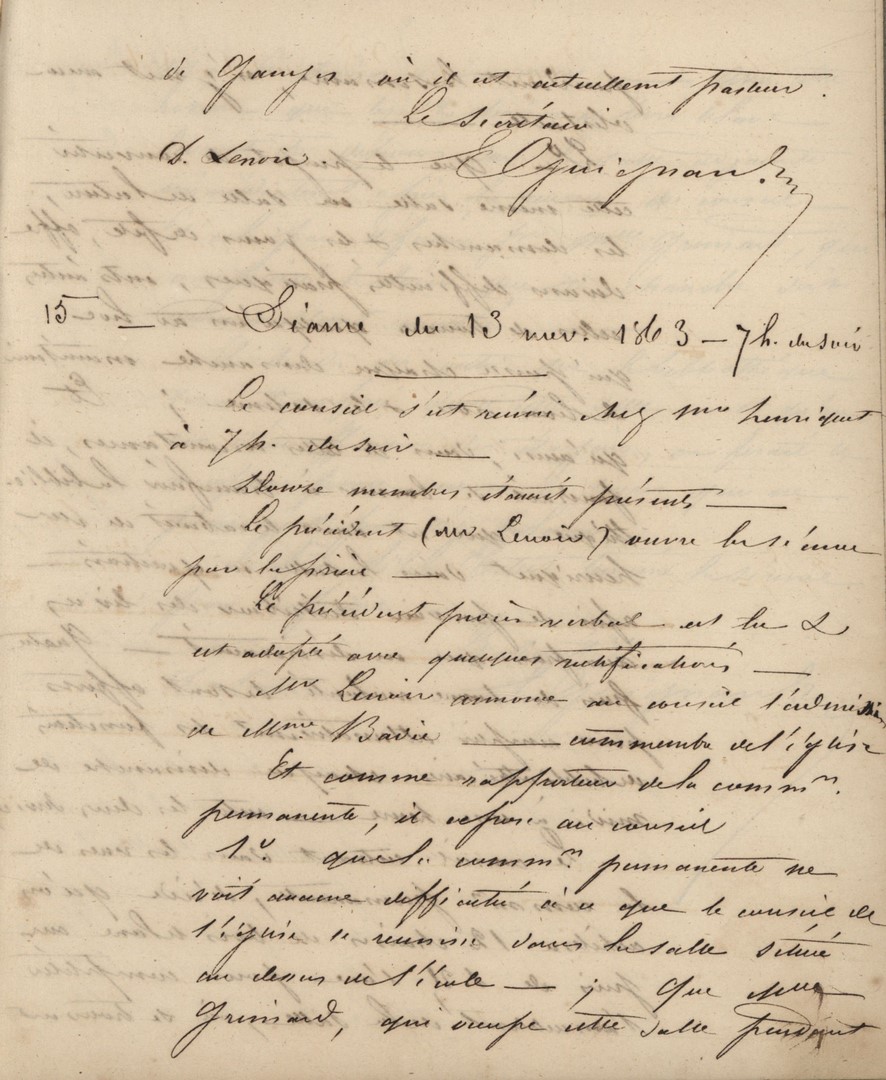 de Ganges où il est actuellement pasteur.
Le Secrétaire
D. Lenoir. E Guignard.
15 — Séance du 13 nov. 1863 — 7 h. du soir
Le conseil s'est réuni chez Mme henriquet
à 7 h. du soir —
Douze membres étaient présents —
Le président (Mr Lenoir) ouvre la séance
par la prière —
Le précédent procès verbal est lu &
est adopté avec quelques rectifications —
Mr Lenoir annonce au conseil l'admission
de Mme Badie — comme membre de l'église
Et comme rapporteur de la common.
permanente, il expose au conseil
1o que la common permanente ne
voit aucune difficulté à ce que le conseil de
l'église se réunisse dans la salle située
au dessus de l'école — ; que Mlle
Grimard, qui occupe cette salle pendant